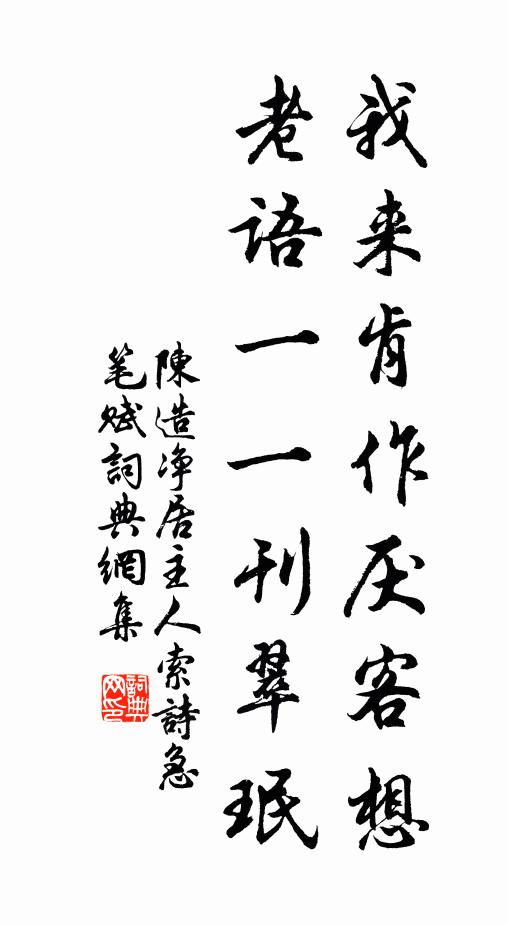 我来肯作厌客想
老语一一刊翠珉
陳造净居主人索詩急
笔赋詞典網集
詞典
网印